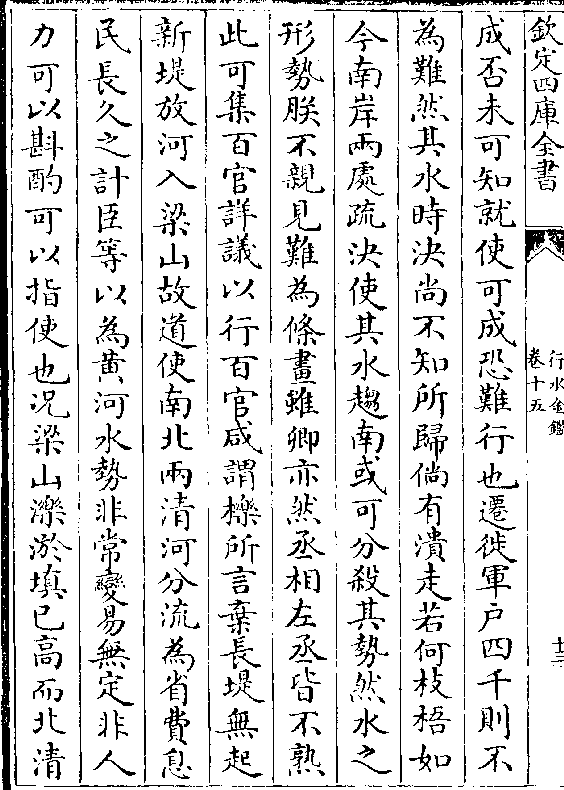 欽定四庫全書
行水金鑑
卷十五
十二
成否未可知就使可成恐難行也遷徙軍户四千則不
為難然其水時決尚不知所歸倘有潰走若何枝梧如
今南岸兩處疏決使其水趨南或可分殺其勢然水之
形勢朕不親見難為條畫雖卿亦然丞相左丞皆不熟
此可集百官詳議以行百官咸謂櫟所言棄長堤無起
新堤放河入梁山故道使南北兩清河分流為省費息
民長久之計臣等以為黄河水勢非常變易無定非人
力可以斟酌可以指使也况梁山濼淤填已高而北清